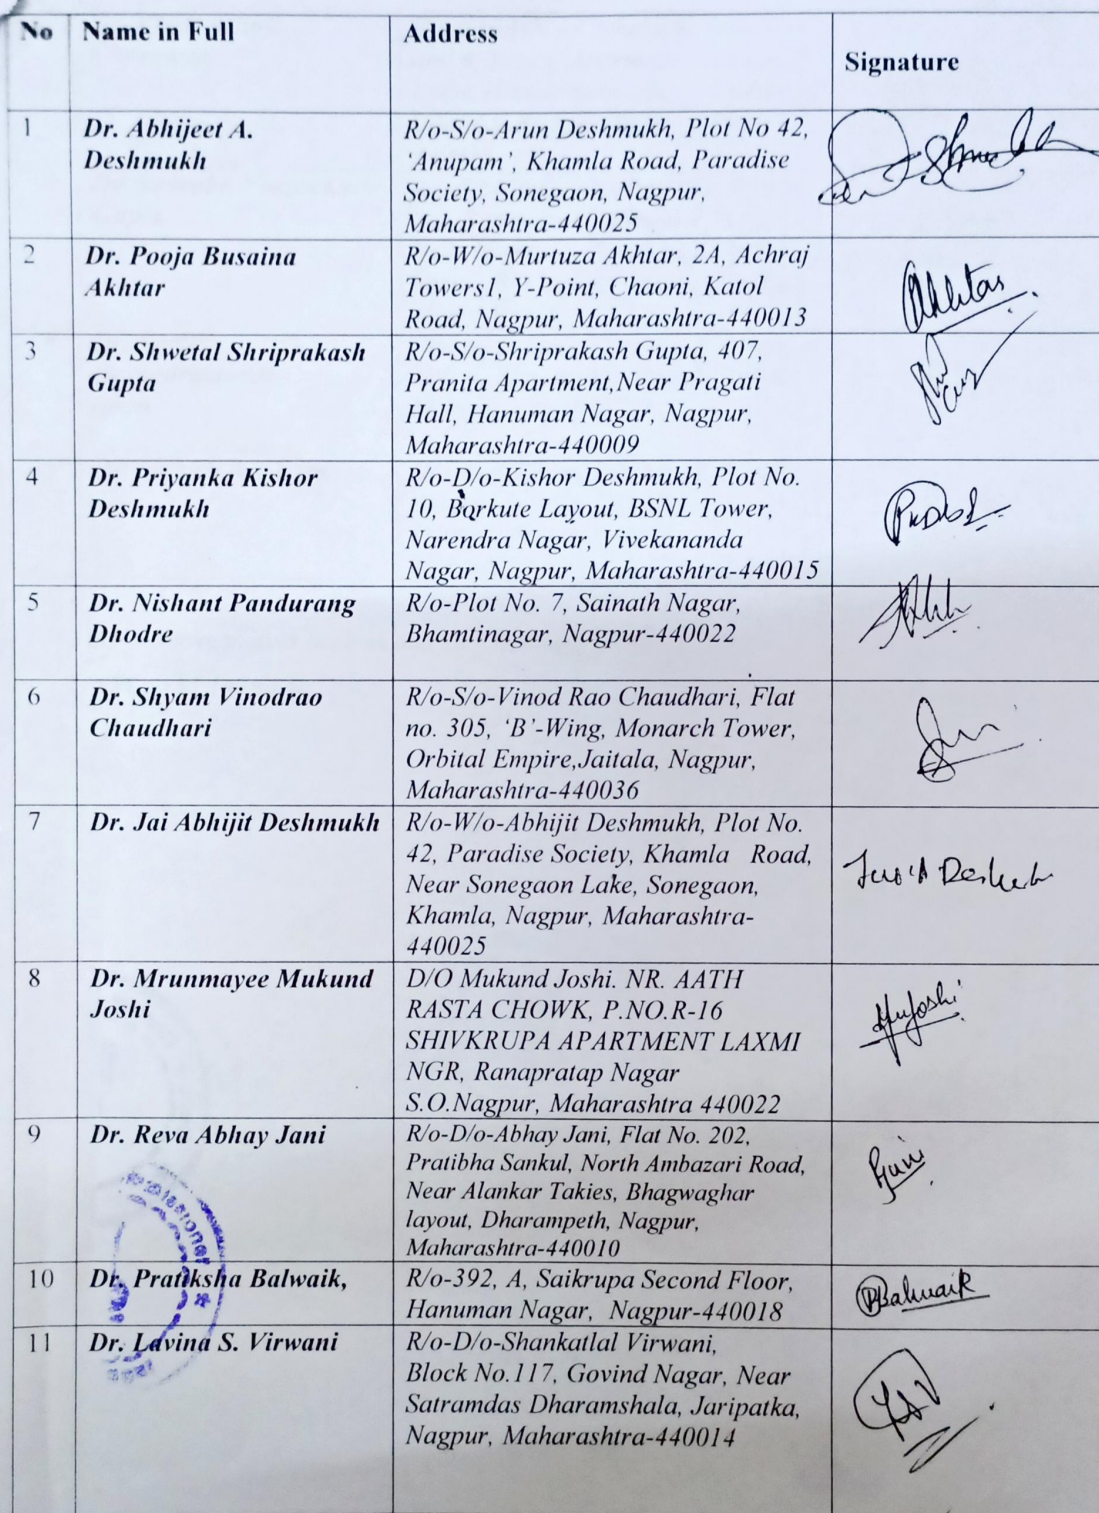 No Name in Full Address Signature
1 Dr. Abhijeet A. Deshmukh
R/o-S/o-Arun Deshmukh, Plot No 42,
‘Anupam’, Khamla Road, Paradise
Society, Sonegaon, Nagpur,
Maharashtra-440025
2 Dr. Pooja Busaina
Akhtar
R/o-W/o-Murtuza Akhtar, 2A, Achraj
Towers1, Y-Point, Chaoni, Katol
Road, Nagpur, Maharashtra-440013
Akhtar
3 Dr. Shwetal Shriprakash
Gupta
R/o-S/o-Shriprakash Gupta, 407,
Pranita Apartment,Near Pragati
Hall, Hanuman Nagar, Nagpur,
Maharashtra-440009
4 Dr. Priyanka Kishor
Deshmukh
R/o-D/o-Kishor Deshmukh, Plot No.
10, Borkute Layout, BSNL Tower,
Narendra Nagar, Vivekananda
Nagar, Nagpur, Maharashtra-440015
5 Dr. Nishant Pandurang
Dhodre
R/o-Plot No. 7, Sainath Nagar,
Bhamtinagar, Nagpur-440022
6 Dr. Shyam Vinodrao
Chaudhari
R/o-S/o-Vinod Rao Chaudhari, Flat
no. 305, ‘B’-Wing, Monarch Tower,
Orbital Empire,Jaitala, Nagpur,
Maharashtra-440036
7 Dr. Jai Abhijit Deshmukh
R/o-W/o-Abhijit Deshmukh, Plot No.
42, Paradise Society, Khamla Road,
Near Sonegaon Lake, Sonegaon,
Khamla, Nagpur, Maharashtra-
440025
8 Dr. Mrunmayee Mukund
Joshi
D/O Mukund Joshi. NR. AATH
RASTA CHOWK, P.NO.R-16
SHIVKRUPA APARTMENT LAXMI
NGR, Ranapratap Nagar
S.O.Nagpur, Maharashtra 440022
9 Dr. Reva Abhay Jani
R/o-D/o-Abhay Jani, Flat No. 202,
Pratibha Sankul, North Ambazari Road,
Near Alankar Takies, Bhagwaghar
layout, Dharampeth, Nagpur,
Maharashtra-440010
10 Dr. Pratiksha Balwaik,
R/o-392, A, Saikrupa Second Floor,
Hanuman Nagar, Nagpur-440018
PBalwaik
11 Dr. Lavina S. Virwani
R/o-D/o-Shankatlal Virwani,
Block No.117, Govind Nagar, Near
Satramdas Dharamshala, Jaripatka,
Nagpur, Maharashtra-440014